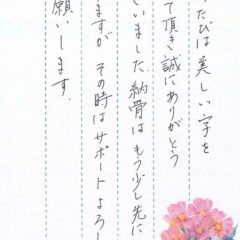 たびは美しい字を
て頂き誠にありがとう
いました。納骨はもう少し先に
ますが、その時はサポートよろし
願いします。